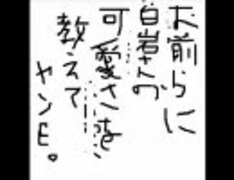 お前らに
白岩さんの
可愛さを
教えて
ヤンE。